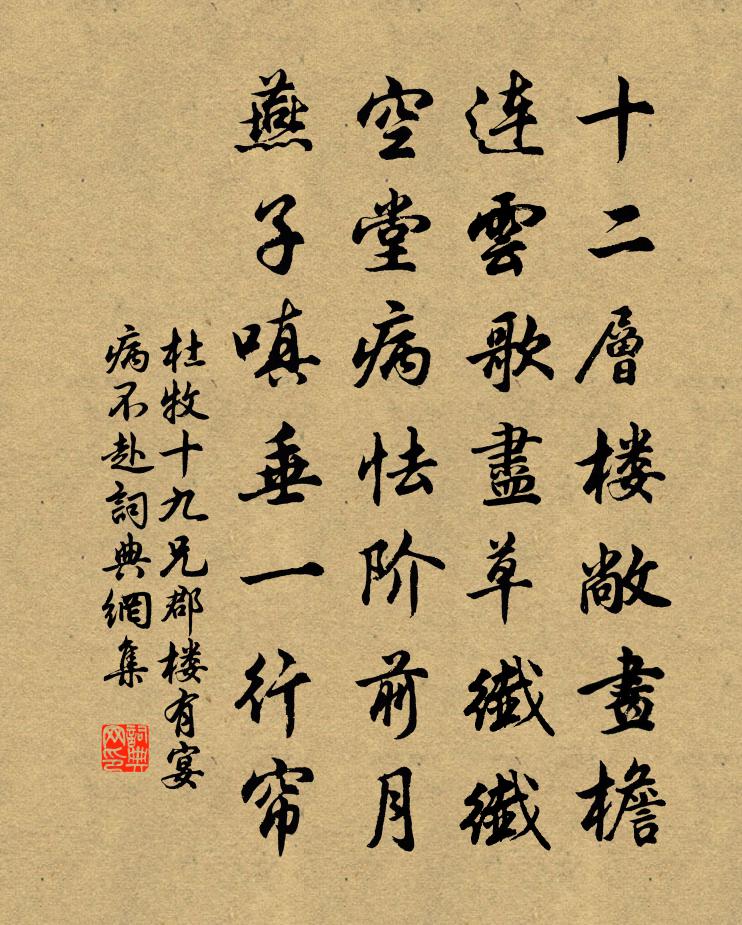 十二層楼敞畫檐
連雲歌盡草纖纖
空堂病怯阶前月
燕子嗔垂一行帘
杜牧十九兄郡楼有宴
病不赴詞典網集
詞典
网印